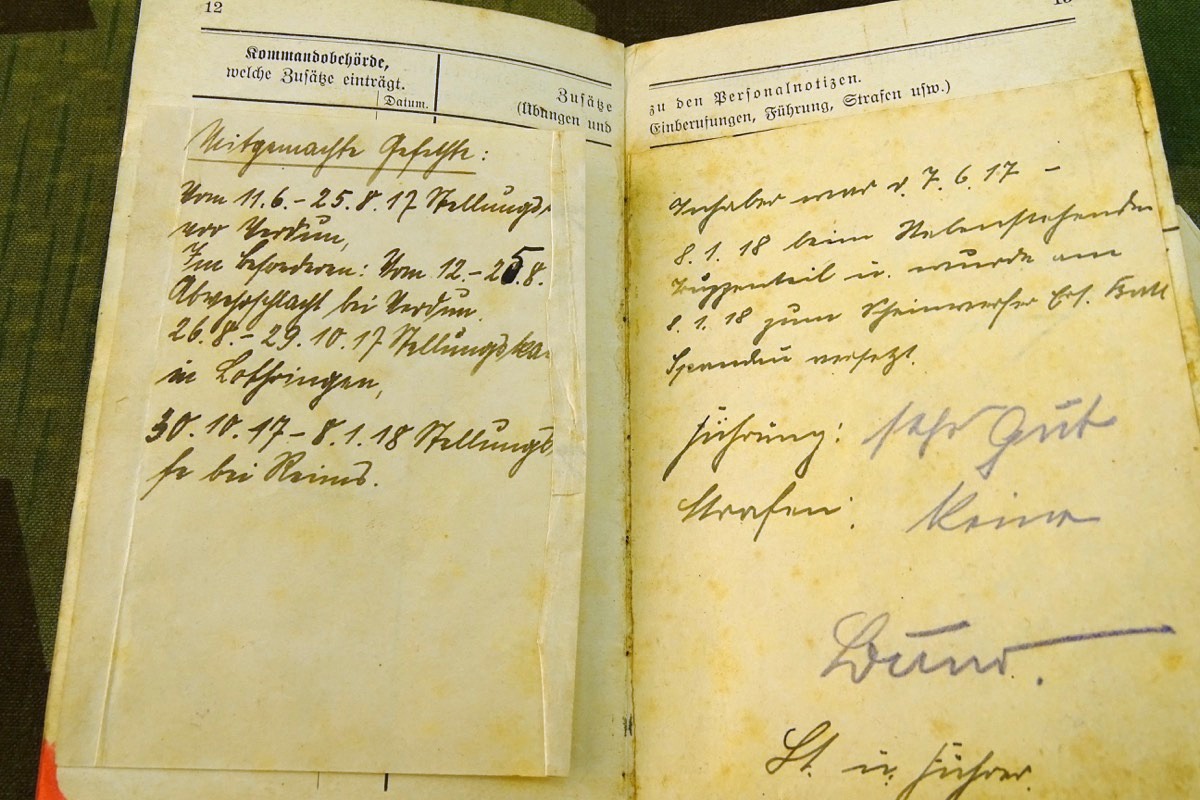 12
Kommandobehörde,
welche Zusätze einträgt.
Datum.
Zusätze
(Übungen und
Mitgemachte Gefechte:
Vom 11.6.–25.8.17 Stellungs-
vor Verdun,
Im besonderen: Vom 12.–25.8.
Abwehrschlacht bei Verdun.
26.8.–29.10.17 Stellungska-
in Lothringen,
30.10.17–8.1.18 Stellungs
fe bei Reims.
zu den Personalnotizen.
Einberufungen, Führung, Strafen usw.)
Inhaber war v. 7.6.17 –
8.1.18 beim Nebenstehenden
Truppenteil u. wurde am
8.1.18 zum Scheinwerfer Ers. Batl
Spandau versetzt.
Führung: sehr gut
Strafen: Keine
Lt. u. Führer.